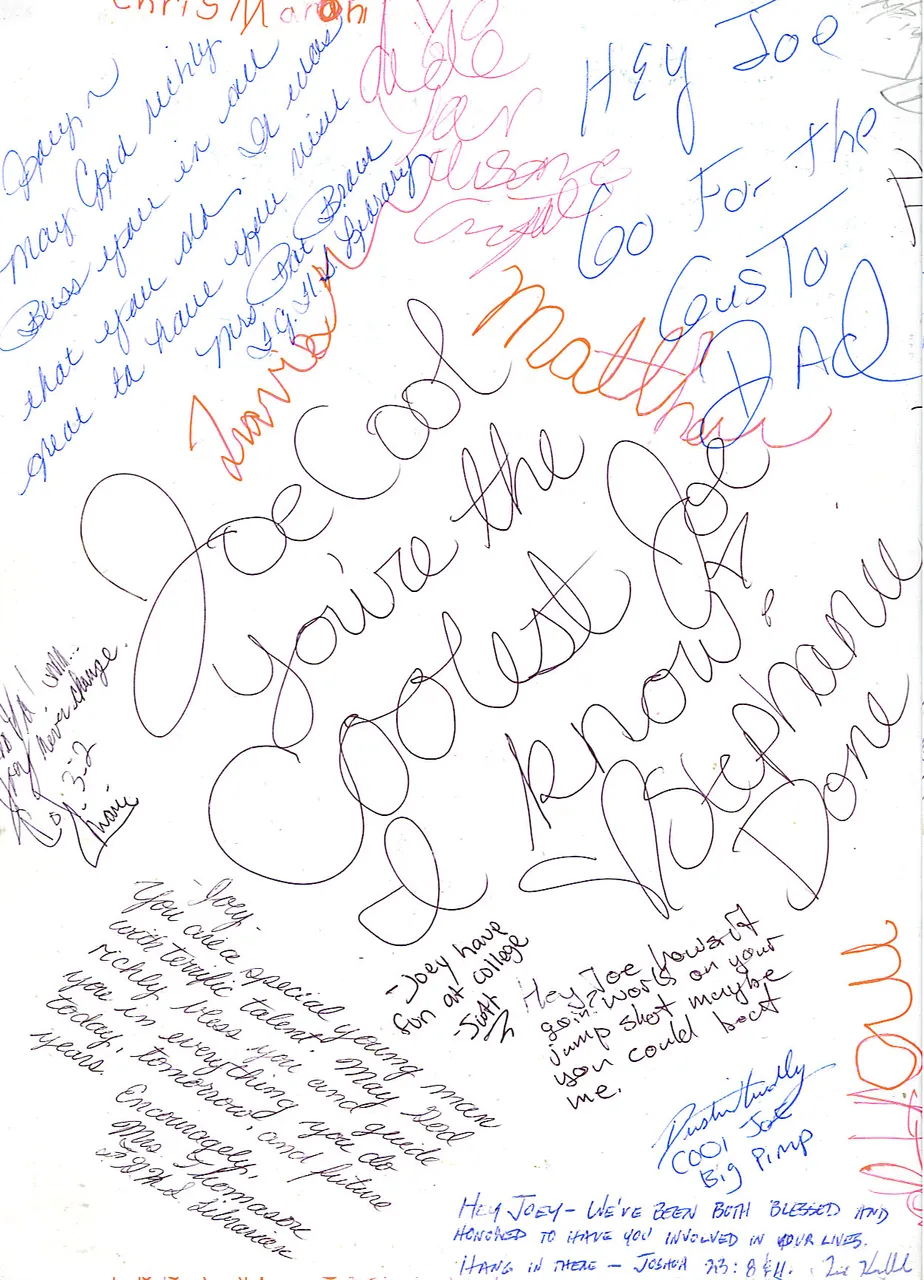 Chris
Joey ~
May God richly
Bless you in all
that you do. It was
great to have you
Mrs Pat
Library
HEY JOE
GO FOR THE
GUSTO
DAD
Travis
Matthew
Joe Cool
you're the
Coolest Joe
I know!
- Stephanie
Done
never change.
Col. 3:2
-Joey-
You are a special young man
with terrific talent. May God
richly bless you and guide
you in everything you do
today, tomorrow, and future
years.
Encouragely,
Mrs. Thomason
Librarian
-Joey have
fun at college
-Scott
Hey Joe hows it
goin? Work on your
Jump shot maybe
you could beat
me.
Dustin
COOl Joe
Big Pimp
HEY JOEY- WE'VE BEEN BOTH BLESSED AND
HONORED TO HAVE YOU INVOLVED IN OUR LIVES.
HANG IN THERE - JOSHUA 23:8